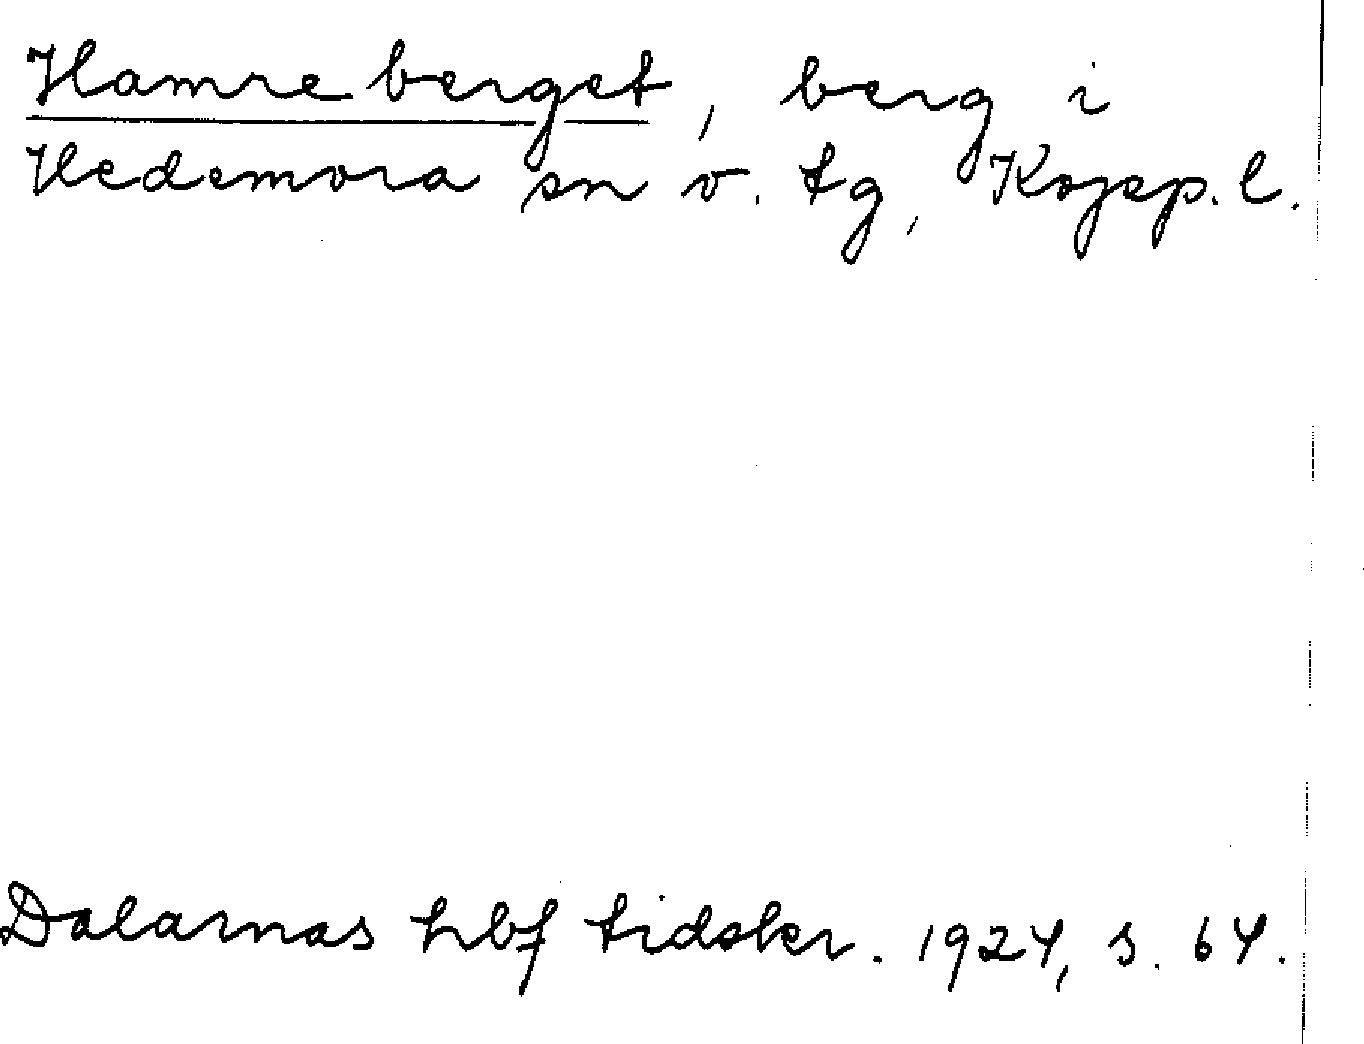 Hamreberget, berg i
Hedemora sn o. tg, Kopp. l.
Dalarnas hbf tidskr. 1924, s. 64.